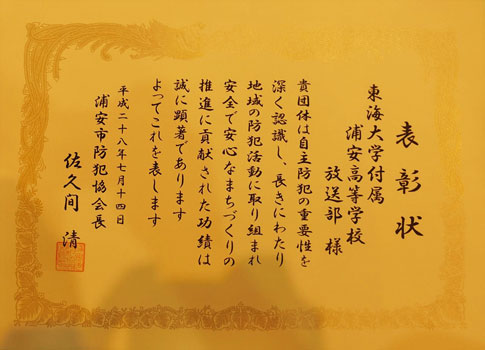 表彰状
東海大学付属
浦安高等学校
放送部 様
貴団体は自主防犯の重要性を
深く認識し、長きにわたり
地域の防犯活動に取り組まれ
安全で安心なまちづくりの
推進に貢献された功績は
誠に顕著であります
よってこれを表します
平成二十八年七月十四日
浦安市防犯協会長
佐久间 清